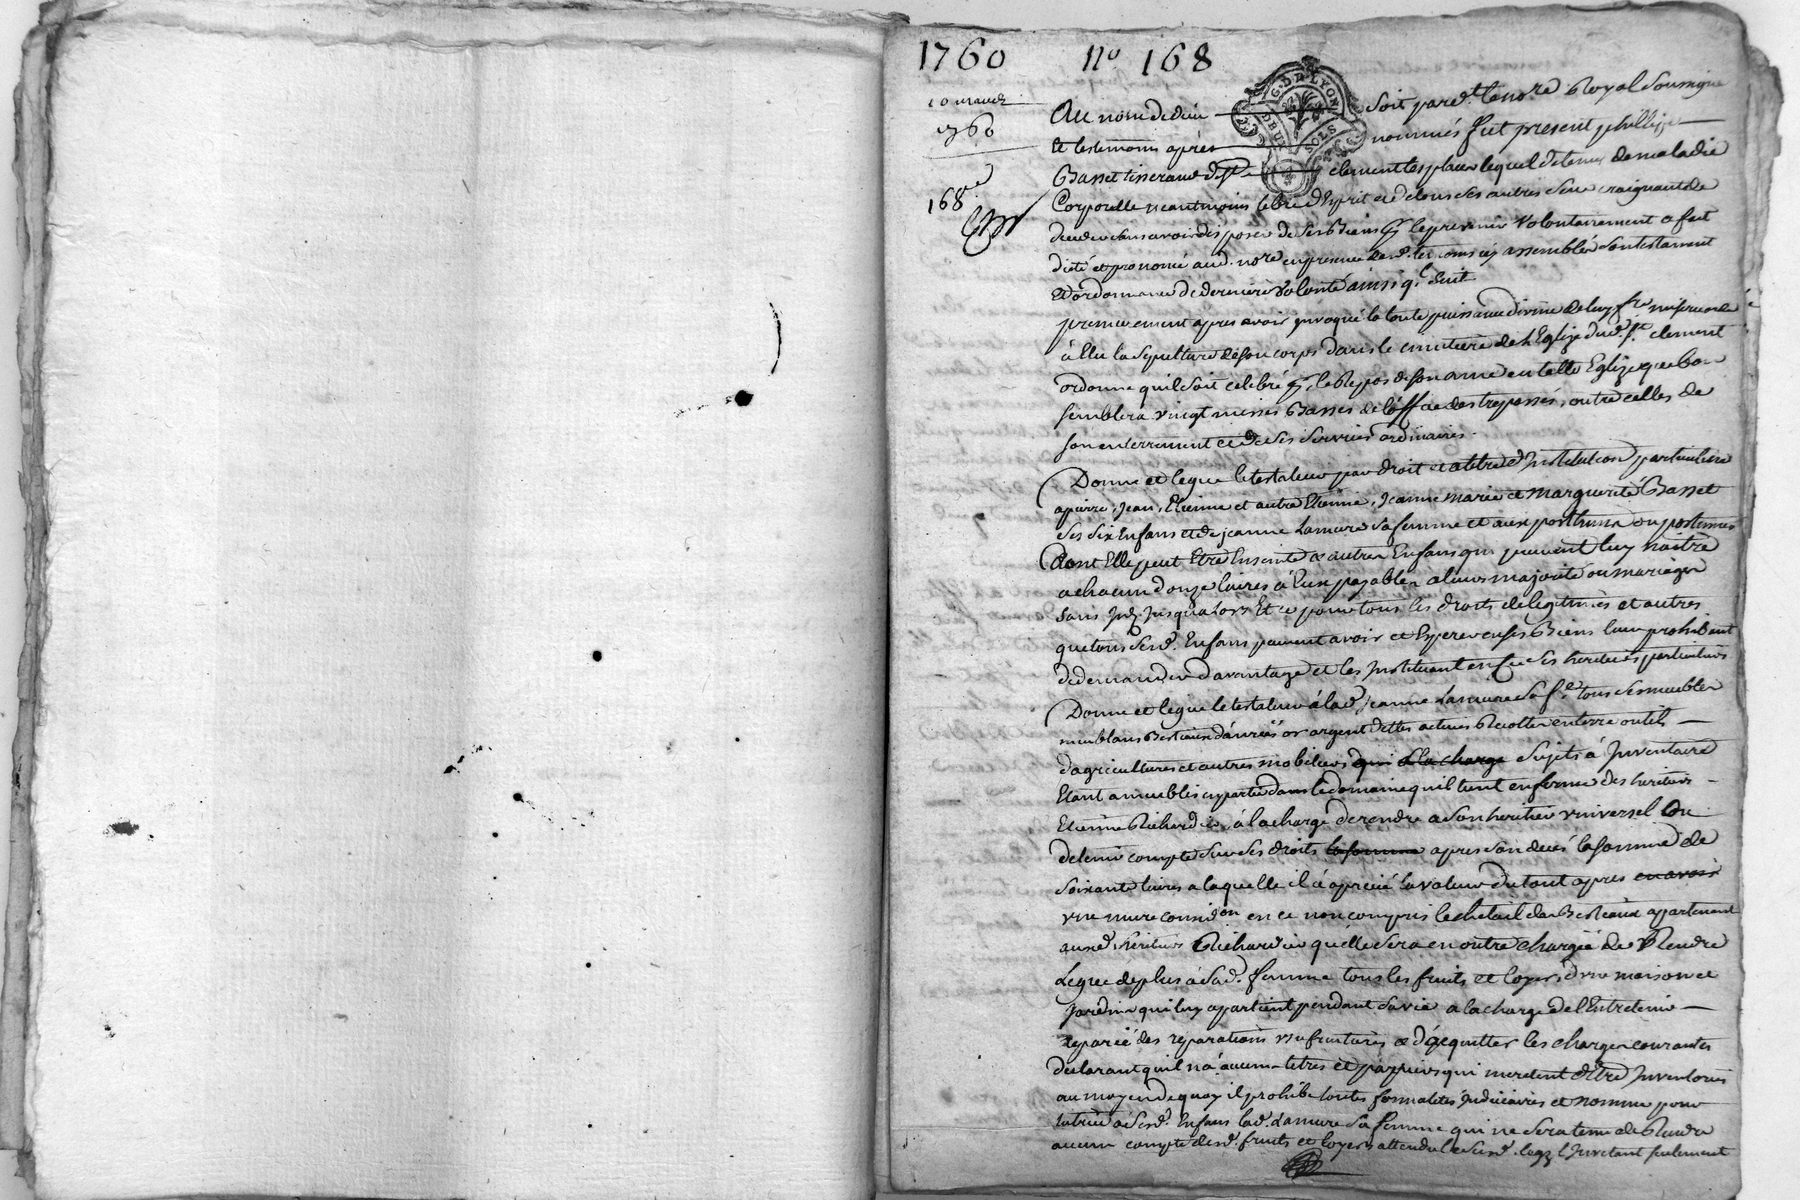 1760 no 168
10 mars
1760
168e
G.D D LYON
DEUX SOLS
Au nom de dieu soit pard.t le no.re Royal Soussigné
et les temoins après nommés fut present phillippe
Basset tisserand de St. clement les places lequel detenu de maladie
Corporelle neantmoins libre d'Esprit et de tous ses autres sens craignant de
deceder sans avoir disposé de ses Biens p.r le prevenir volontairement a fait
dicté et prononcé aud. no.re en presence desd. temoins icy assemblés son testament
et ordonnance de derniere volonté ainsi q.e suit
premierement apres avoir invoqué la toute puissance divine de luy f.re misericorde
à Elu la sepulture de son corps dans le cimitière de l'Eglize dud. St. clement
ordonne qu'il soit celebré p.r le Repos de son ame en telle Eglize que bon
semblera vingt messes Basses de l'off.ce des trepassés, outre celles de
son enterrement et de ses services ordinaires.
Donne et legue le testateur par droit et tiltre d'Institution particuliere
a pierre, Jean, Etienne et autre Etienne, Jeanne marie et marguerite Basset
ses six Enfans et de jeanne Lamure sa femme et aux posthume ou postumes
dont Elle peut Etre Enceinte & autres Enfans qui peuvent luy naitre
a chacun douze livres à Eux payables a leurs majorité ou mariages
sans Int. Jusqu'alors Et ce pour tous les droits de legitimes et autres
que tous sesd. Enfans peuvent avoir et Esperer en ses Biens leur prohibant
de demander d'avantage et les Instituant en ce ses heritiers particuliers
Donne et legue le testateur à lad. jeanne Lamure sa f.e tous ses meubles
meublans Bestiaux danrées or argent dettes actives Recoltes en terre outils
d'agricultures et autres mobiliers qui a la charge sujets à Inventaire
Etant a meublés en partie dans le domaine qu'il tient en ferme des heritiers
Etienne Richard, à la charge de rendre a son heritier universel ou
de tenir compte sur ses droits la somme apres son decés la somme de
soixante livres a laquelle il a aprecié la valeur du tout apres en avoir
une mure consid.on en ce non compris le chetail des Bestiaux appartenant
auxd. heritiers Richard qu'elle sera en outre chargée de Rendre
Legue de plus à sad. femme tous les fruits et loyers d'une maison et
Jardin qui luy apartient pendant sa vie a la charge de l'Entretenir
reparée des reparations usufruitieres & d'acquitter les charges courantes
declarant qu'il n'a aucuns titres et papiers qui meritent d'Etre Inventoriés
au moyen de quoy il prohibe toutes formalités judiciaires et nomme pour
tutrice à sesd. Enfans lad. Lamure sa femme qui ne sera tenue de Rendre
aucun compte desd. fruits et loyers attendu le susd. legs l'Invitant seulement